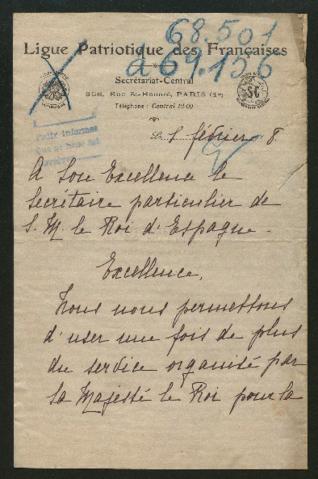 68.501
a 69.156
Ligue Patriotique des Françaises
Secrétariat-Central
368, Rue St-Honoré, PARIS (1er)
Téléphone : Central
Le 1 février 8
Pedir informes
A Son Excellence le
Secrétaire particulier de
S. M. le Roi d'Espagne.
Excellence,
Nous nous permettons
d'user une fois de plus
du service organisé par
Sa Majesté le Roi pour la